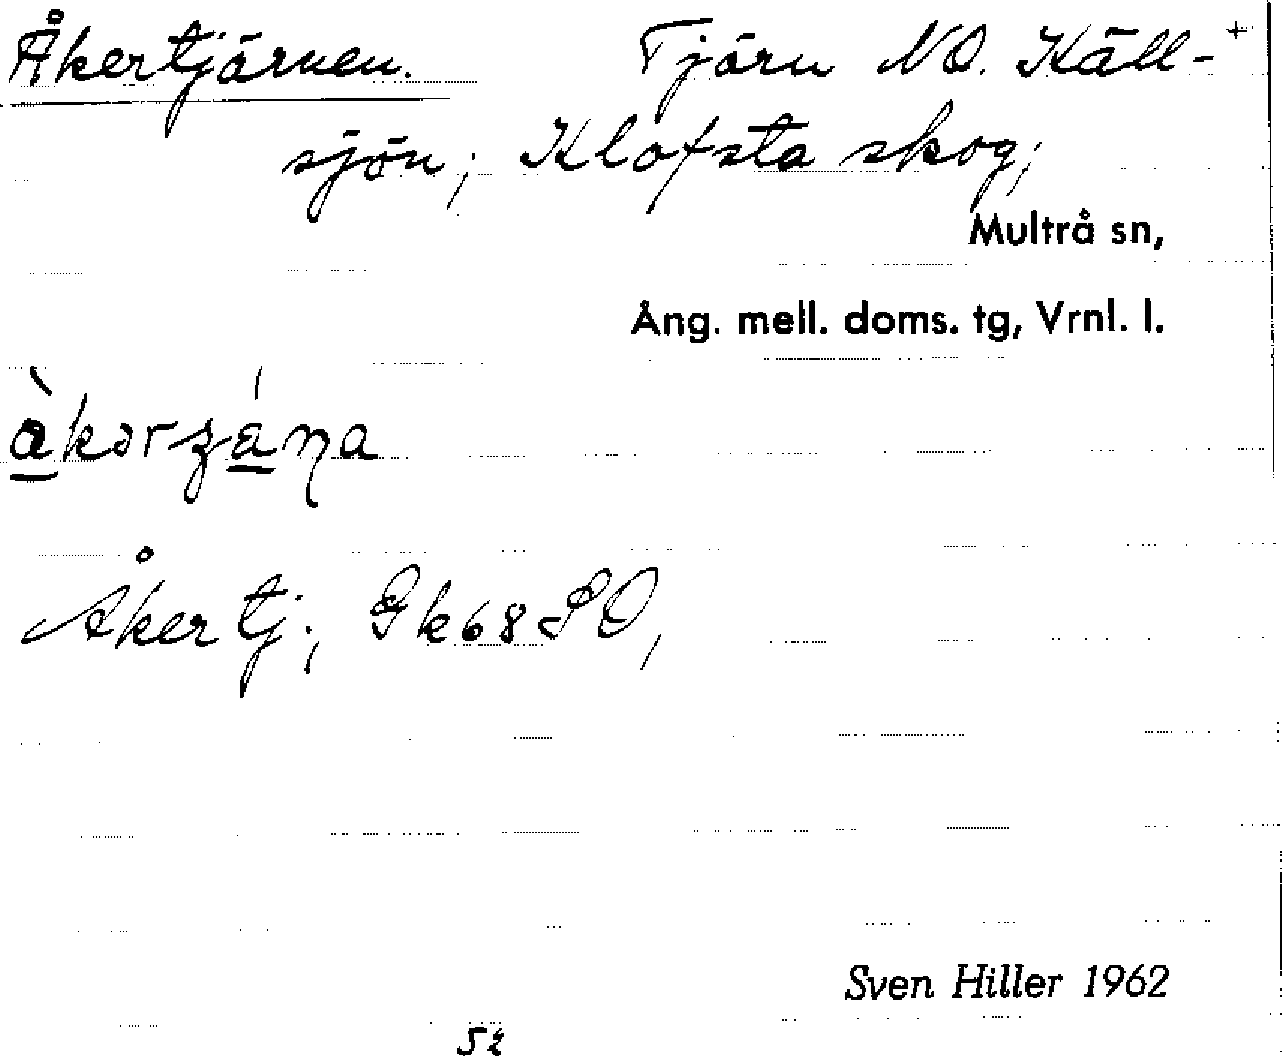 Åkertjärnen. Tjärn NO. Käll- +
sjön; Klofsta skog;
Multrå sn,
Ång. mell. doms. tg, Vrnl. l.
Åkertj:, Gk68SO,
Sven Hiller 1962